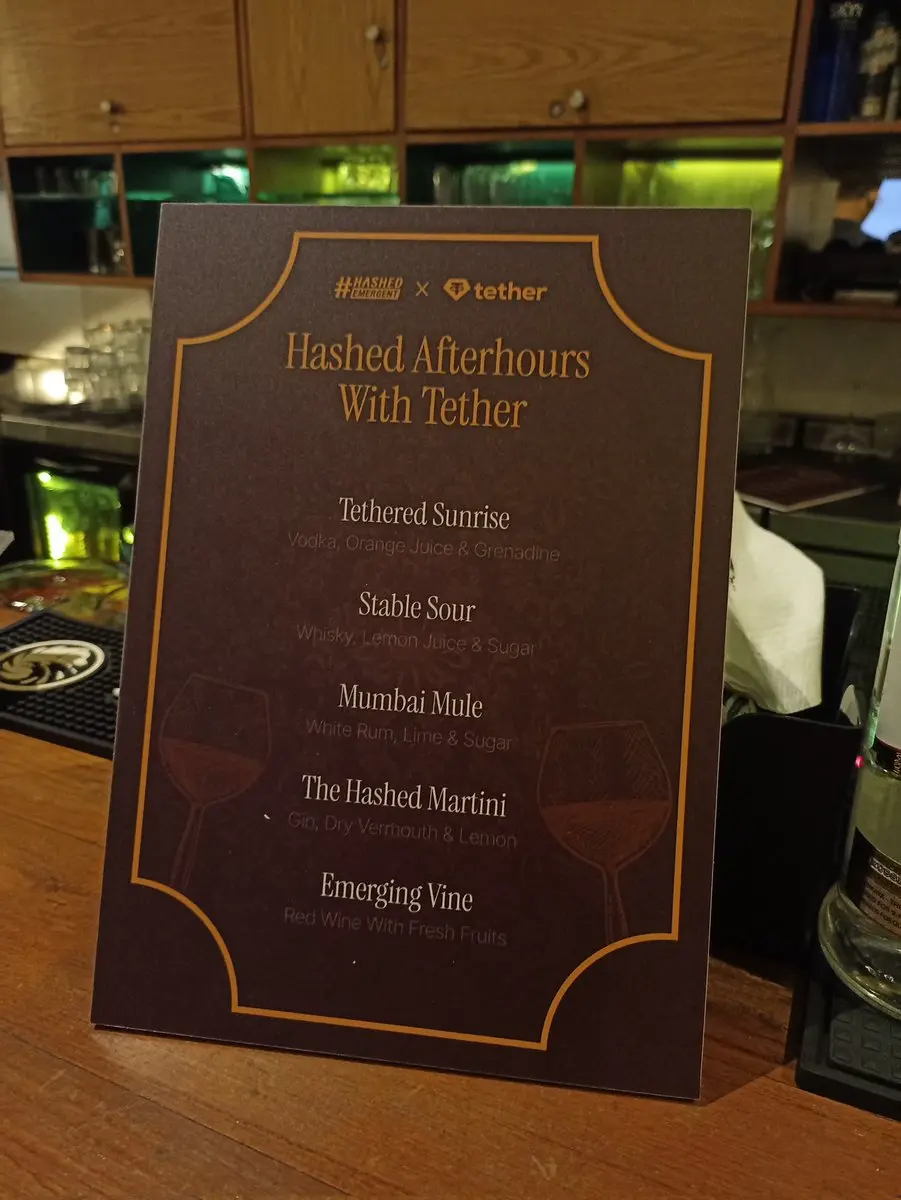 #HASHED EMERGENT × tether
Hashed Afterhours
With Tether
Tethered Sunrise
Vodka, Orange Juice & Grenadine
Stable Sour
Whisky, Lemon Juice & Sugar
Mumbai Mule
White Rum, Lime & Sugar
The Hashed Martini
Gin, Dry Vermouth & Lemon
Emerging Vine
Red Wine With Fresh Fruits